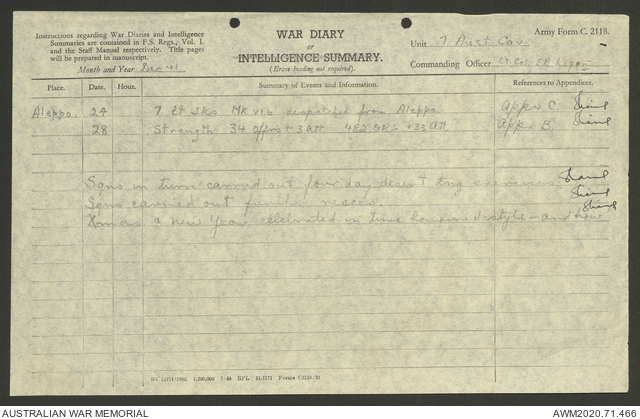 Instructions regarding War Diaries and Intelligence
Summaries are contained in F.S. Regs., Vol. I.
and the Staff Manual respectively. Title pages
will be prepared in manuscript.
Month and Year Dec 41
WAR DIARY
or
INTELLIGENCE SUMMARY.
(Erase heading not required).
Army Form C. 2118.
Unit Aust Cav
Commanding Officer Lt. Col. E.E.
Place. Date. Hour. Summary of Events and Information. References to Appendices.
Aleppo 24 7 Lt Tks MK VI b despatched from Aleppo Appx C.
28 Strength 34 offrs + 3 att 482 ORS + 33 att Appx B
Sqns in turn carried out four day desert trng exercises
Sqns carried out further recces.
Xmas & New Year celebrated in time honoured style - and how
AUSTRALIAN WAR MEMORIAL
AWM2020.71.466